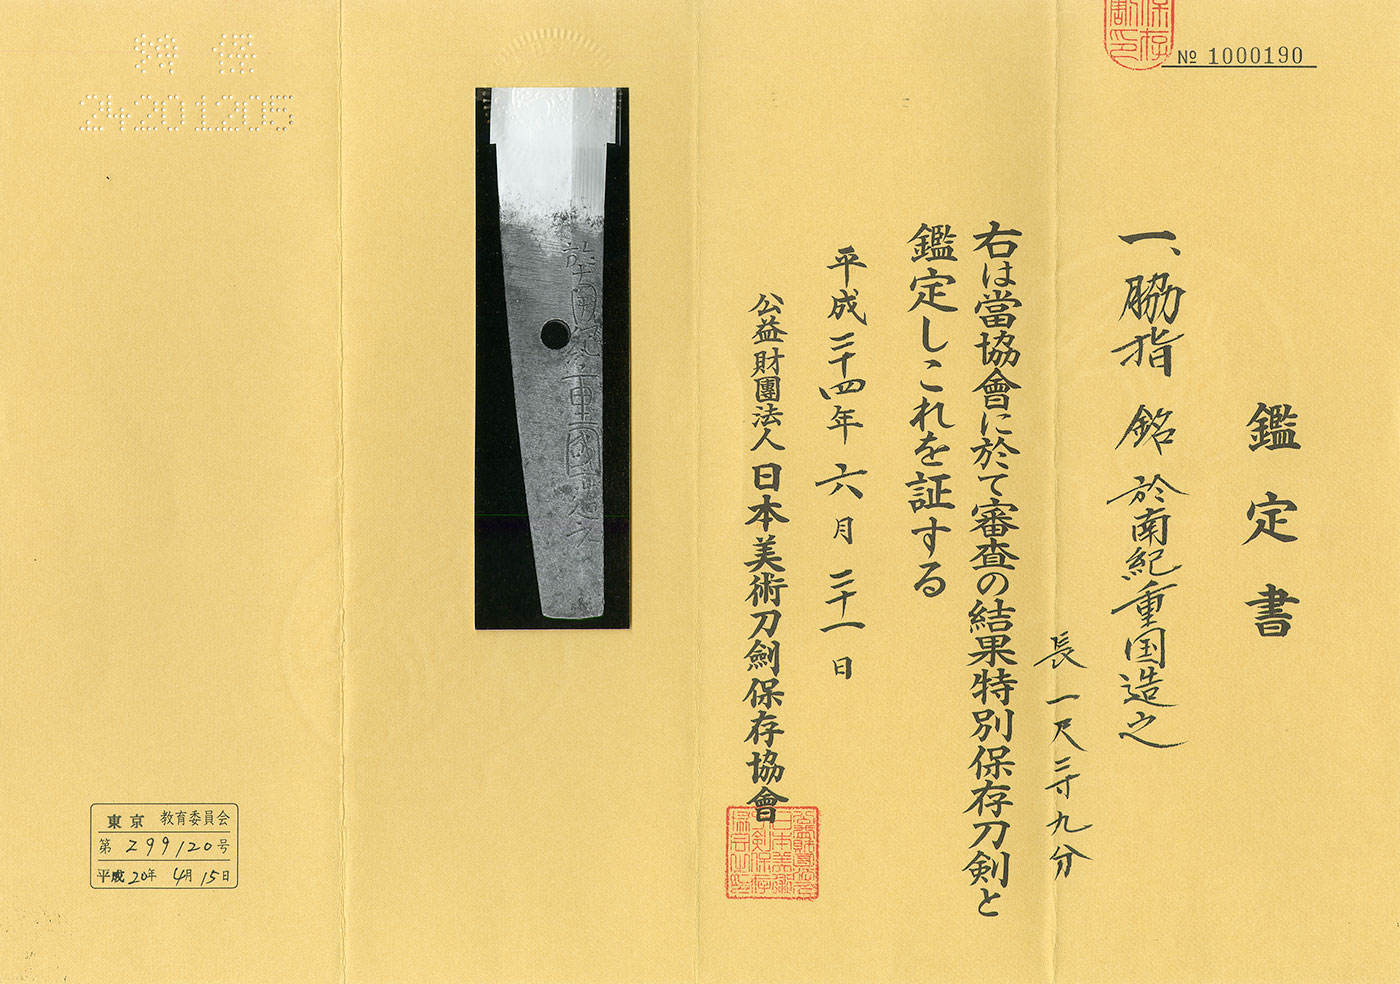 № 1000190
鑑定書
一、脇指 銘 於南紀重国造之
長一尺二寸九分
右は當協會に於て審査の結果特別保存刀剣と
鑑定しこれを証する
平成二十四年六月二十一日
公益財團法人日本美術刀劍保存協會
於南紀重國造之
特保
24201205
東京 教育委員会
第299120号
平成20年4月15日